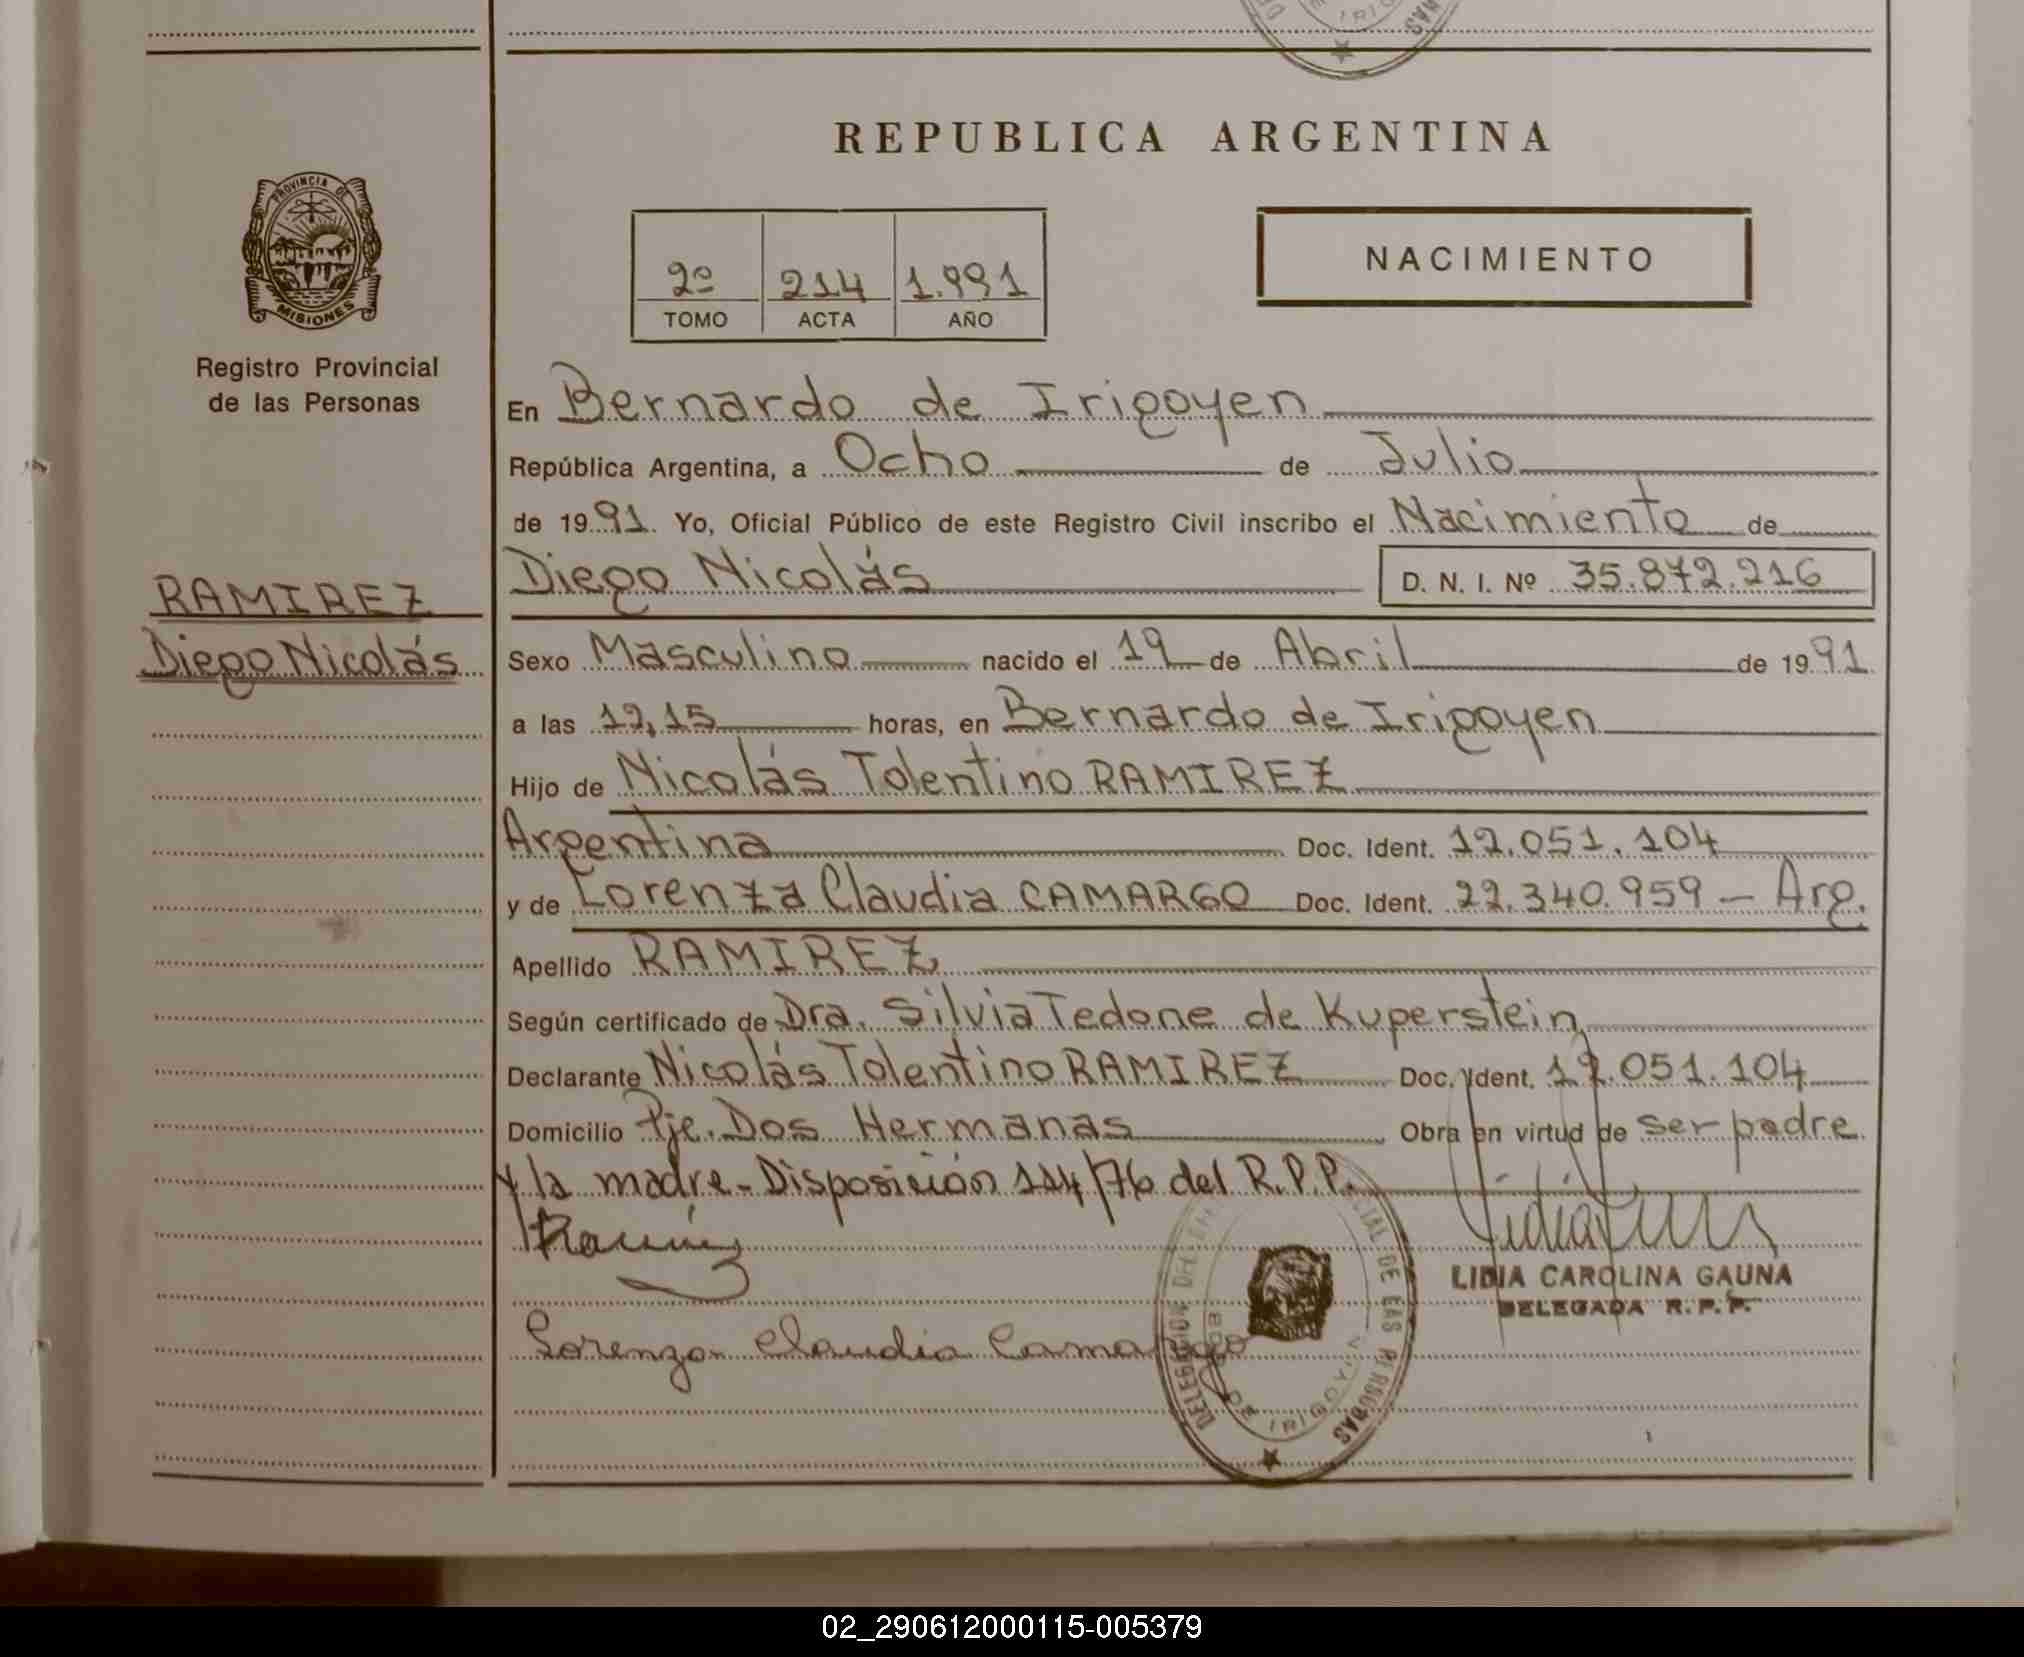 REPUBLICA ARGENTINA
PROVINCIA DE
MISIONES
Registro Provincial
de las Personas
2º 214 1.991
TOMO ACTA AÑO
NACIMIENTO
En Bernardo de Irigoyen
República Argentina, a Ocho de Julio
de 1991. Yo, Oficial Público de este Registro Civil inscribo el Nacimiento de
Diego Nicolás D. N. I. Nº 35.872.216
RAMIREZ
Diego Nicolás
Sexo Masculino nacido el 19 de Abril de 1991
a las 12,15 horas, en Bernardo de Irigoyen
Hijo de Nicolás Tolentino RAMIREZ
Argentina Doc. Ident. 12.051.104
y de Lorenza Claudia CAMARGO Doc. Ident. 22.340.959 - Arg.
Apellido RAMIREZ,
Según certificado de Dra. Silvia Tedone de Kuperstein,
Declarante Nicolás Tolentino RAMIREZ Doc. Ident. 12.051.104
Domicilio Pje. Dos Hermanas Obra en virtud de ser padre
y la madre - Disposición 114/76 del R.P.P.
Lorenza Claudia Camargo
LIDIA CAROLINA GAUNA
DELEGADA R. P. P.
DE IRIGOYEN
02_290612000115-005379